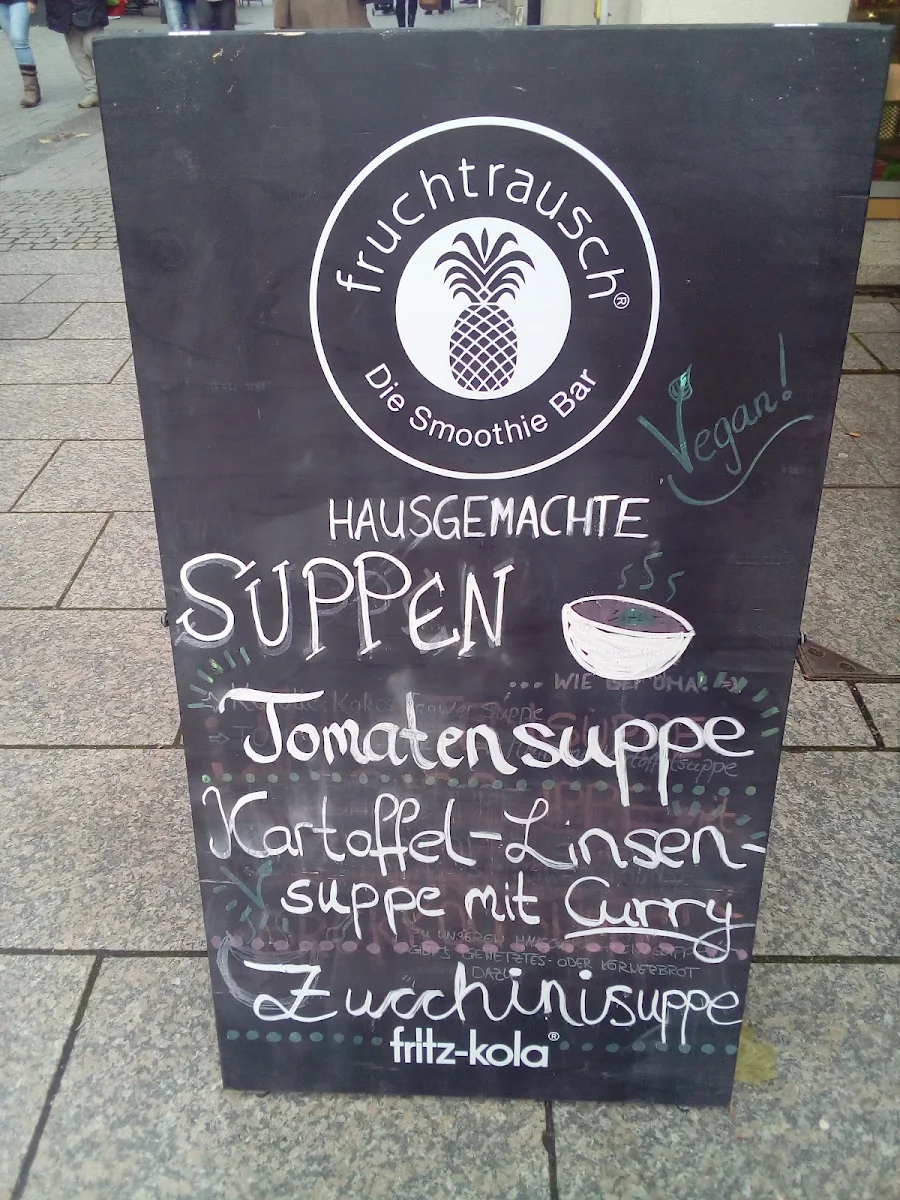 fruchtrausch®
Die Smoothie Bar
Vegan!
HAUSGEMACHTE
SUPPEN
... WIE BEI OMA!
Tomatensuppe
Kartoffel-Linsen-
suppe mit Curry
Zucchinisuppe
fritz-kola®